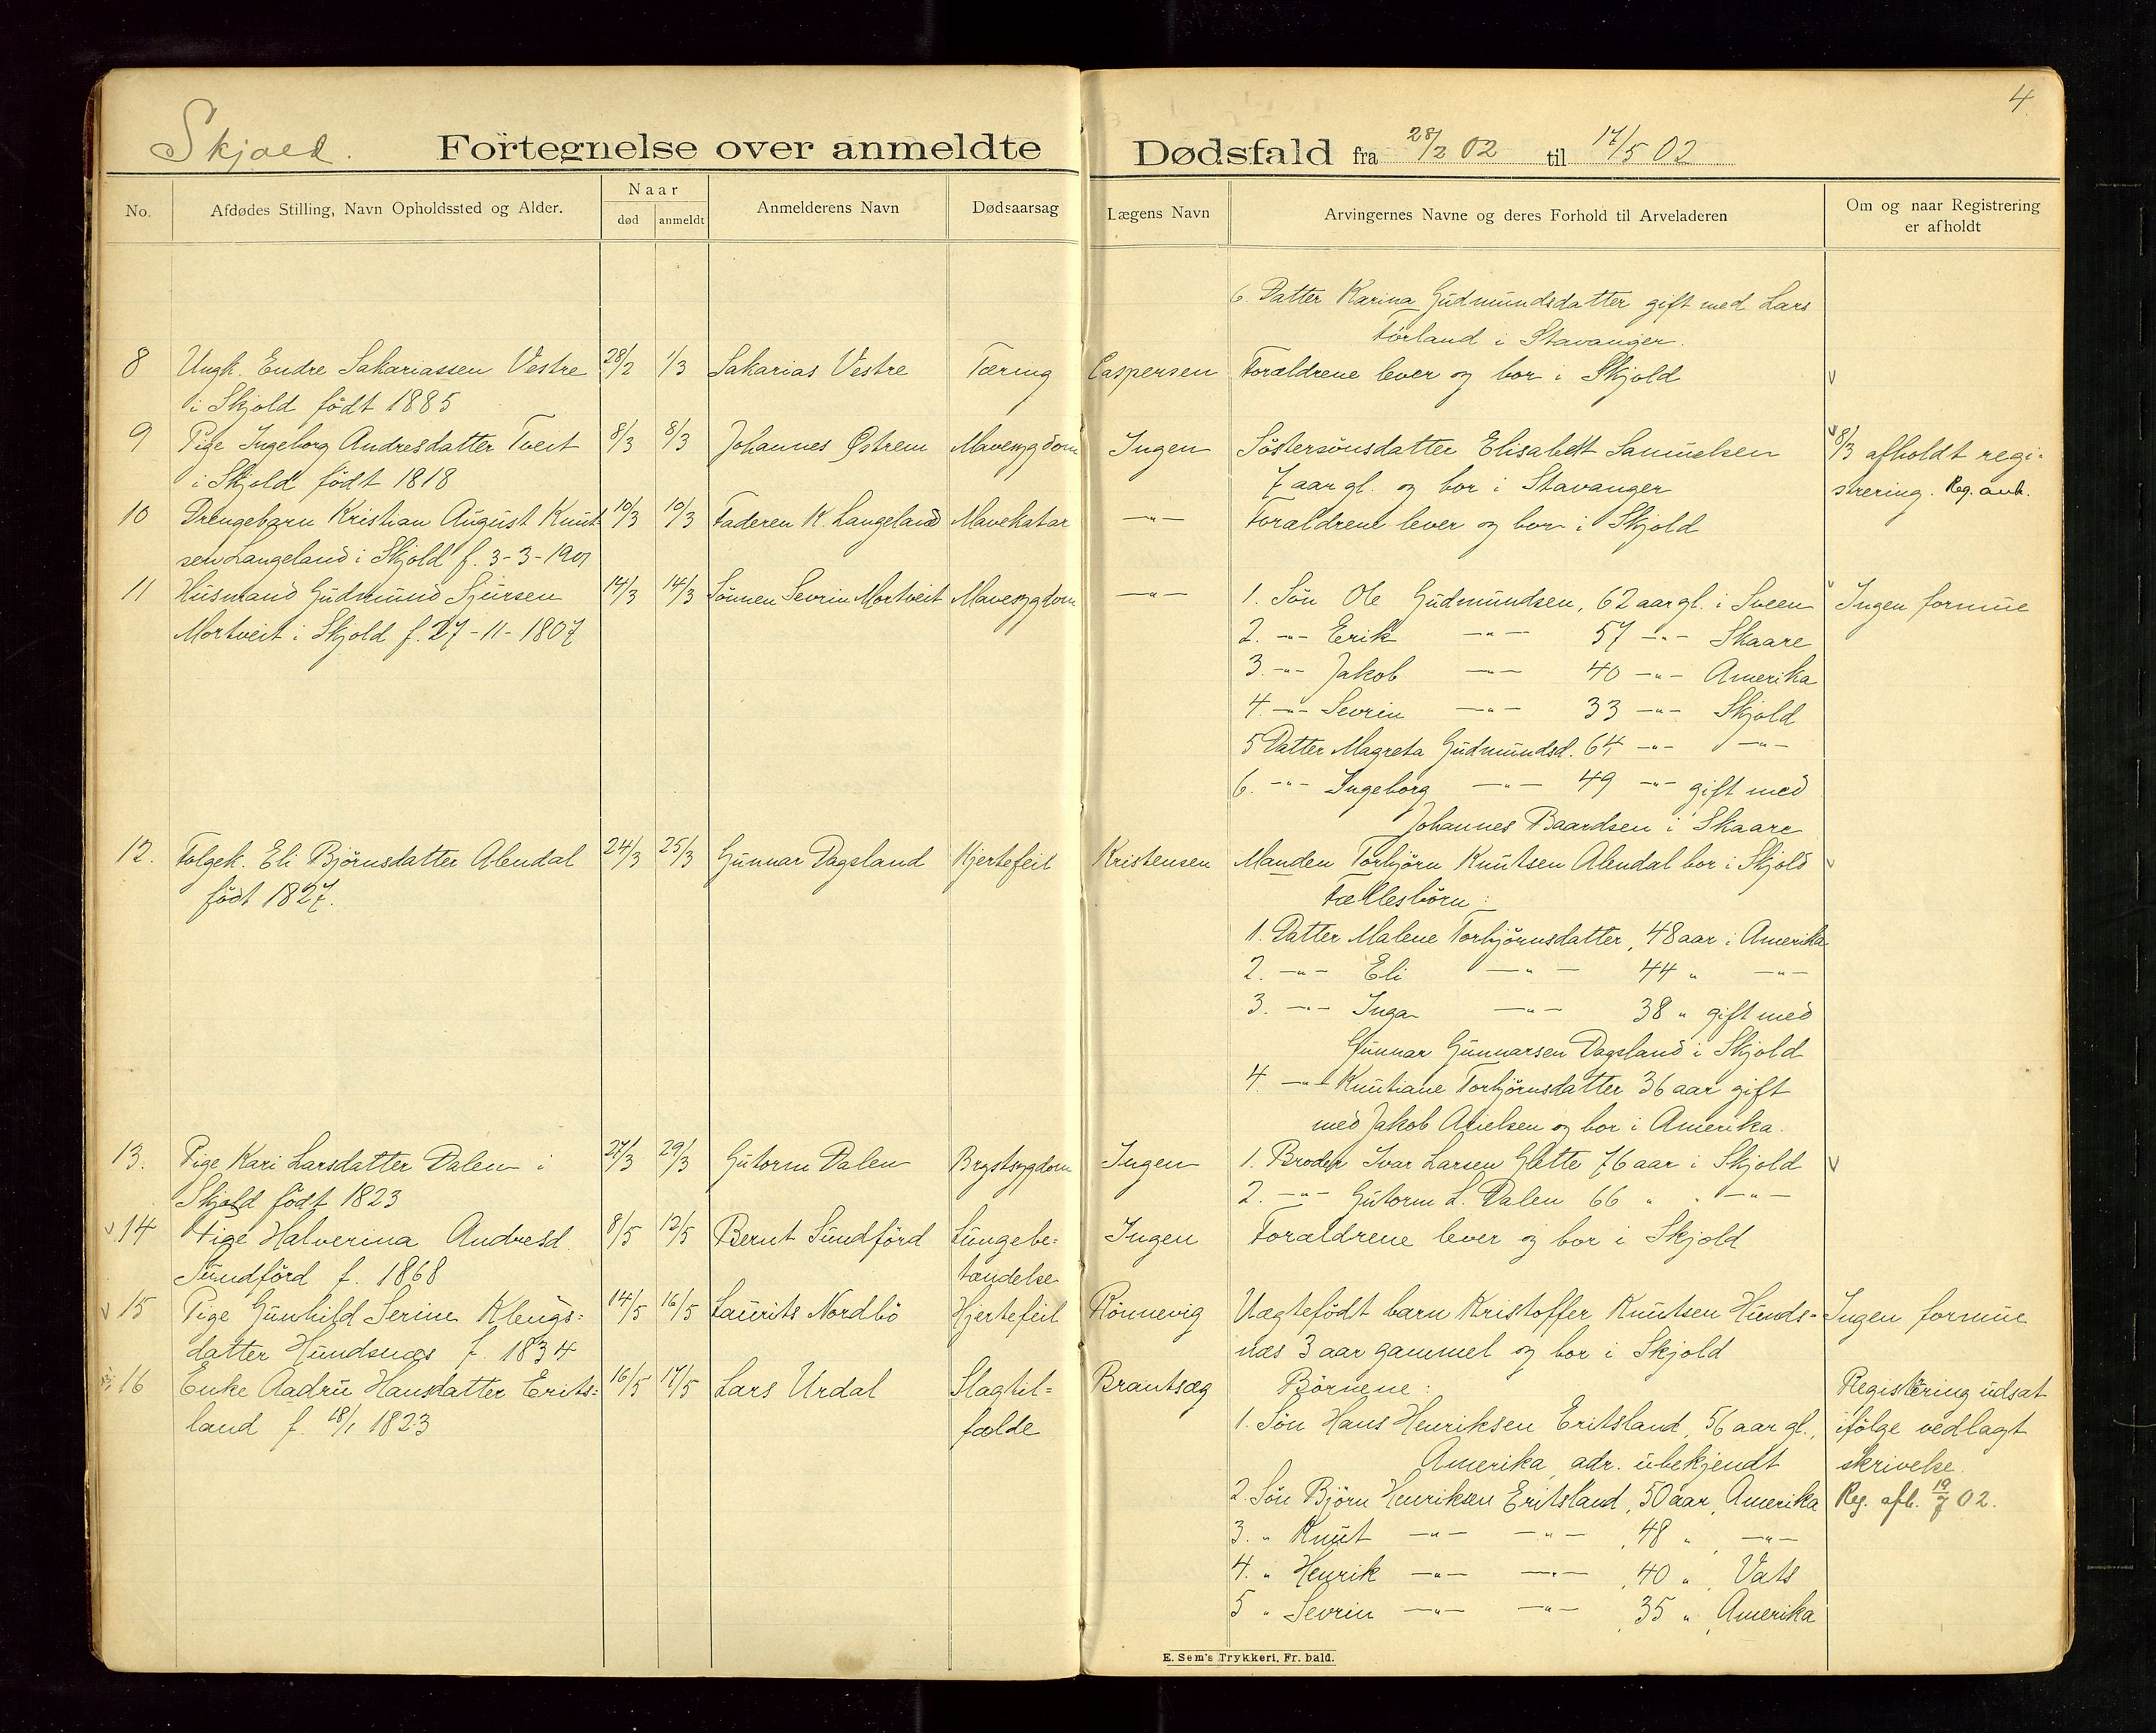 4.
Skjold. Fortegnelse over anmeldte Dødsfald fra 28/2 02 til 17/5 02
No. Afdødes Stilling, Navn Opholdssted og Alder. Naar død anmeldt Anmelderens Navn Dødsaarsag Lægens Navn Arvingernes Navne og deres Forhold til Arveladeren Om og naar Registrering er afholdt
6. Datter Karina Gudmundsdatter gift med Lars
Förland i Stavanger.
8 Ungk. Endre Sakariassen Vestre 28/2 1/3 Sakarias Vestre Tæring Caspersen Forældrene lever og bor i Skjold v
i Skjold födt 1885
9 Pige Ingeborg Andresdatter Tveit 8/3 8/3 Johannes Østrem Mavesygdom Ingen Söstersönsdatter Elisabet Samuelsen v 8/3 afholdt regi-
i Skjold födt 1818 7 aar gl. og bor i Stavanger strering. Reg. anh.
10 Drengebarn Kristian August Knut 10/3 10/3 Faderen K. Langeland Mavekatar —"— Forældrene lever og bor i Skjold
sen Langeland i Skjold f. 3-3-1901
11 Husmand Gudmund Sjursen 14/3 14/3 Sönnen Sevrin Mortveit Mavesygdom —"— 1. Sön Ole Gudmundsen, 62 aar gl. i Sveen v Ingen formue
Mortveit i Skjold f. 27-11-1807 2. —"— Erik —"— 57 —"— Skaare
3. —"— Jakob —"— 40 —"— Amerika
4. —"— Sevrin —"— 33 —"— Skjold
5 Datter Magreta Gudmundsd. 64 —"— —"—
6. —"— Ingeborg —"— 49 —"— gift med
Johannes Baardsen i Skaare
12. Folgek. Eli Björnsdatter Alendal 24/3 25/3 Gunnar Dagsland Hjertefeil Kristensen Manden Torbjörn Knutsen Alendal bor i Skjold v
födt 1827. Fællesbörn:
1. Datter Malene Torbjörnsdatter, 48 aar i Amerika
2. —"— Eli —"— 44 " —"—
3. —"— Inga —"— 38 " gift med
Gunnar Gunnarsen Dagsland i Skjold
4. —"— Knutiane Torbjörnsdatter 36 aar gift
med Jakob Atielsen og bor i Amerika.
13. Pige Kari Larsdatter Dalen i 27/3 29/3 Gutorm Dalen Brystsygdom Ingen 1. Broder Ivar Larsen Glette 76 aar i Skjold v
Skjold födt 1823 2. —"— Gutorm L. Dalen 66 " " —"—
v 14 Pige Halverina Andresd. 8/5 12/5 Bernt Sundförd Lungebe= Ingen Forældrene lever og bor i Skjold
Sundförd f. 1868 tændelse
v 15 Pige Gunhild Serine Klengs= 14/5 16/5 Laurits Nordbö Hjertefeil Rönnevig Uægtefödt barn Kristoffer Knutsen Hunds- Ingen formue
datter Hundsnæs f. 1834 næs 3 aar gammel og bor i Skjold
16 Enke Aadru Hansdatter Erits= 16/5 17/5 Lars Urdal Slagtil= Brautsæg Börnene: Registering udsat
land f. 18/1 1823 fælde 1. Sön Hans Henriksen Eritsland, 56 aar gl., ifölge vedlagt
Amerika, adr. ubekjendt skrivelse.
2. Sön Björn Henriksen Eritsland, 50 aar, Amerika Reg. afh. 19/7 02.
3. " Knut —"— —"— , 48 " , —"—
4. " Henrik —"— —"— , 40 " , Vats
5 " Sevrin —"— —"— , 35 " , Amerika
E. Sem's Trykkeri, Fr.hald.